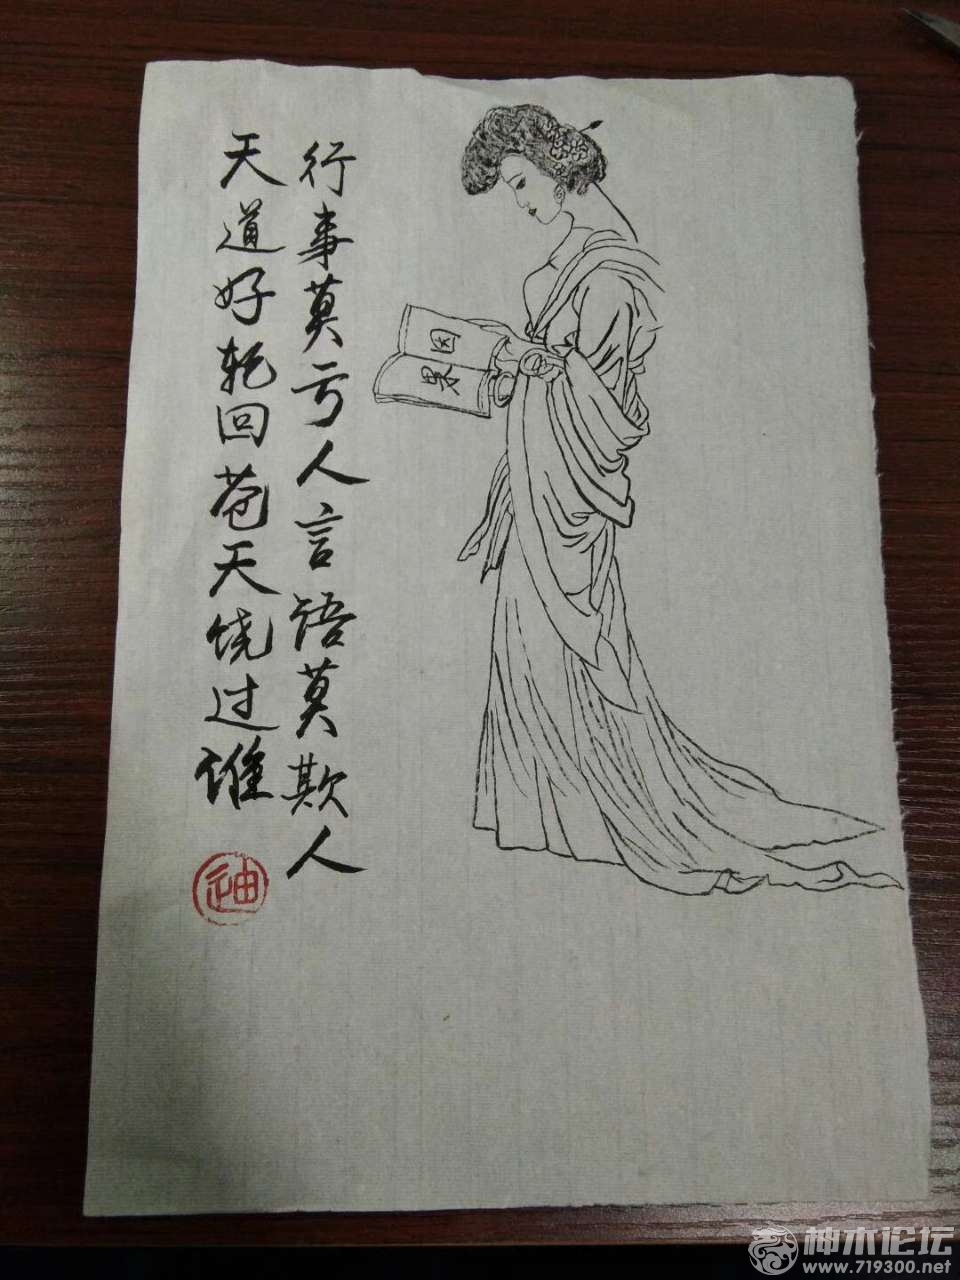 行事莫亏人言语莫欺人
天道好轮回苍天饶过谁
因
果
神木论坛
www.719300.net